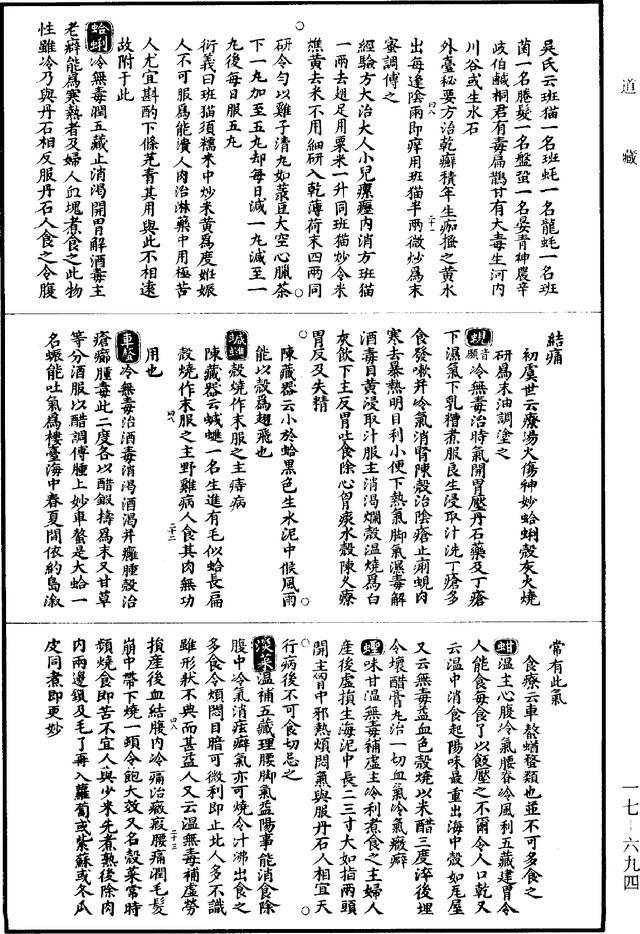 道藏
吳氏云班猫一名班蚝一名龍蚝一名班
菌一名䏰髮一名盤蛩一名晏青神農辛
歧伯鹹桐君有毒扁鵲甘有大毒生河内
川谷或生水石
外臺秘要方治乾癬積年生痂搔之黄水
出每逢陰雨即痒用班猫半兩微炒爲末
蜜調傅之
經驗方大治大人小兒瘰癧内消方班猫
一兩去翅足用粟米一升同班猫炒令米
燋黄去米不用細研入乾薄荷末四兩同
研令匀以雞子清丸如菉豆大空心臘茶
下一丸加至五丸却每日減一丸減至一
丸後每日服五丸
衍義曰班猫須糯米中炒米黄爲度妊娠
人不可服爲能潰人肉治淋藥中用極苦
人尤宜斟酌下條芫青其用與此不相遠
故附于此
蛤蜊冷無毒潤五藏止消渴開胃解酒毒主
老癖能爲寒熱者及婦人血塊煮食之此物
性雖冷乃與丹石相反服丹石人食之令腹
結痛
初虞世云療湯火傷神妙蛤蜊殻灰火燒
研爲末油調塗之
蜆音顯冷無毒治時氣開胃壓丹石藥及丁瘡
下濕氣下乳糟煮服良生浸取汁洗丁瘡多
食發嗽并冷氣消腎陳殻治陰瘡止痢蜆肉
寒去暴熱明目利小便下熱氣脚氣濕毒解
酒毒目黄浸取汁服主消渴爛殻温燒爲白
灰飲下主反胃吐食除心胷痰水殻陳久療
胃反及失精
陳藏器云小於蛤黑色生水泥中候風雨
能以殻爲翅飛也
蝛䗯殻燒作末服之主痔病
陳藏器云蝛䗯一名生進有毛似蛤長扁
殻燒作末服之主野雞病人食其肉無功
用也
車螯冷無毒治酒毒消渴酒渴并癰腫殻治
瘡癤腫毒此二度各以醋鍛擣爲末又甘草
等分酒服以醋調傅腫上妙車螯是大蛤一
名蜄能吐氣爲樓臺海中春夏間依約島溆
常有此氣
食療云車螯蝤蝥類也並不可多食之
蚶温主心腹冷氣腰脊冷風利五藏建胃令
人能食每食了以飯壓之不爾令人口乾又
云温中消食起陽味最重出海中殻如瓦屋
又云無毒益血色殻燒以米醋三度淬後埋
令壞醋膏丸治一切血氣冷氣癥癖
蟶味甘温無毒補虚主冷利煮食之主婦人
産後虚損生海泥中長二三寸大如指兩頭
開主胷中邪熱煩悶氣與服丹石人相宜天
行病後不可食切忌之
淡菜温補五藏理腰脚氣益陽事能消食除
腹中冷氣消痃癖氣亦可燒令汁沸出食之
多食令煩悶目暗可微利即止此人多不識
雖形狀不典而甚益人又云温無毒補虚勞
損産後血結腹内冷痛治癥瘕腰痛潤毛髮
崩中帶下燒一頓令飽大效又名殻菜常時
頻燒食即苦不宜人與少米先煮熟後除肉
内兩邊鎖及毛了再入蘿蔔或紫蘇或冬瓜
皮同煮即更妙
一七－六九四